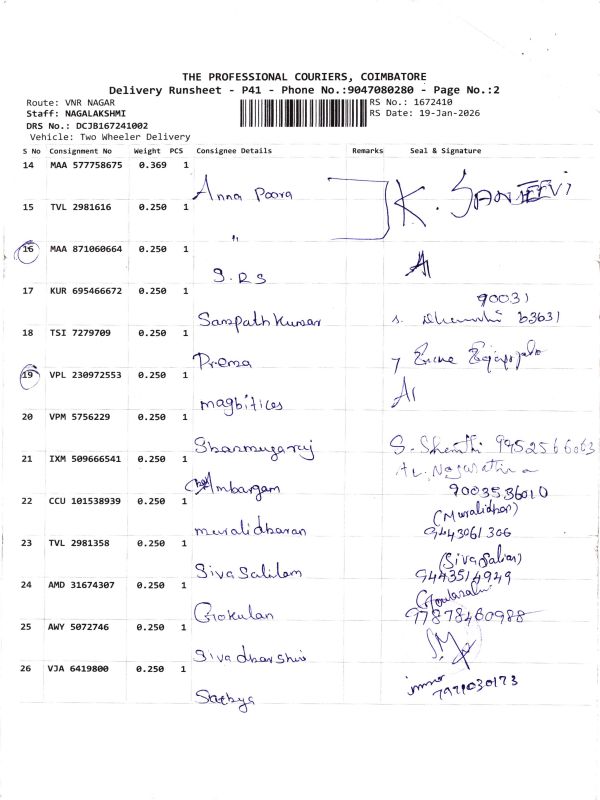 THE PROFESSIONAL COURIERS, COIMBATORE
Delivery Runsheet - P41 - Phone No.:9047080280 - Page No.:2
Route: VNR NAGAR
RS No.: 1672410
Staff: NAGALAKSHMI
RS Date: 19-Jan-2026
DRS No.: DCJB167241002
Vehicle: Two Wheeler Delivery
S No Consignment No Weight PCS Consignee Details Remarks Seal & Signature
14 MAA 577758675 0.369 1
Anna Poora K. SANJEEVI
15 TVL 2981616 0.250 1
"
16 MAA 871060664 0.250 1
S.R.S
17 KUR 695466672 0.250 1
90031
Sampath Kumar S. 63631
18 TSI 7279709 0.250 1
Prema
19 VPL 230972553 0.250 1
magbitices
20 VPM 5756229 0.250 1
Shanmugaraj S. Shanthi 9952566063
21 IXM 509666541 0.250 1
Ambargam
9003536010
22 CCU 101538939 0.250 1
(Muralidhar)
muralidharan 9443061306
23 TVL 2981358 0.250 1
Sivasalilam 9443514949
24 AMD 31674307 0.250 1
Gokulan 97878460988
25 AWY 5072746 0.250 1
Sivadharshni
26 VJA 6419800 0.250 1
Sathya 7971030173